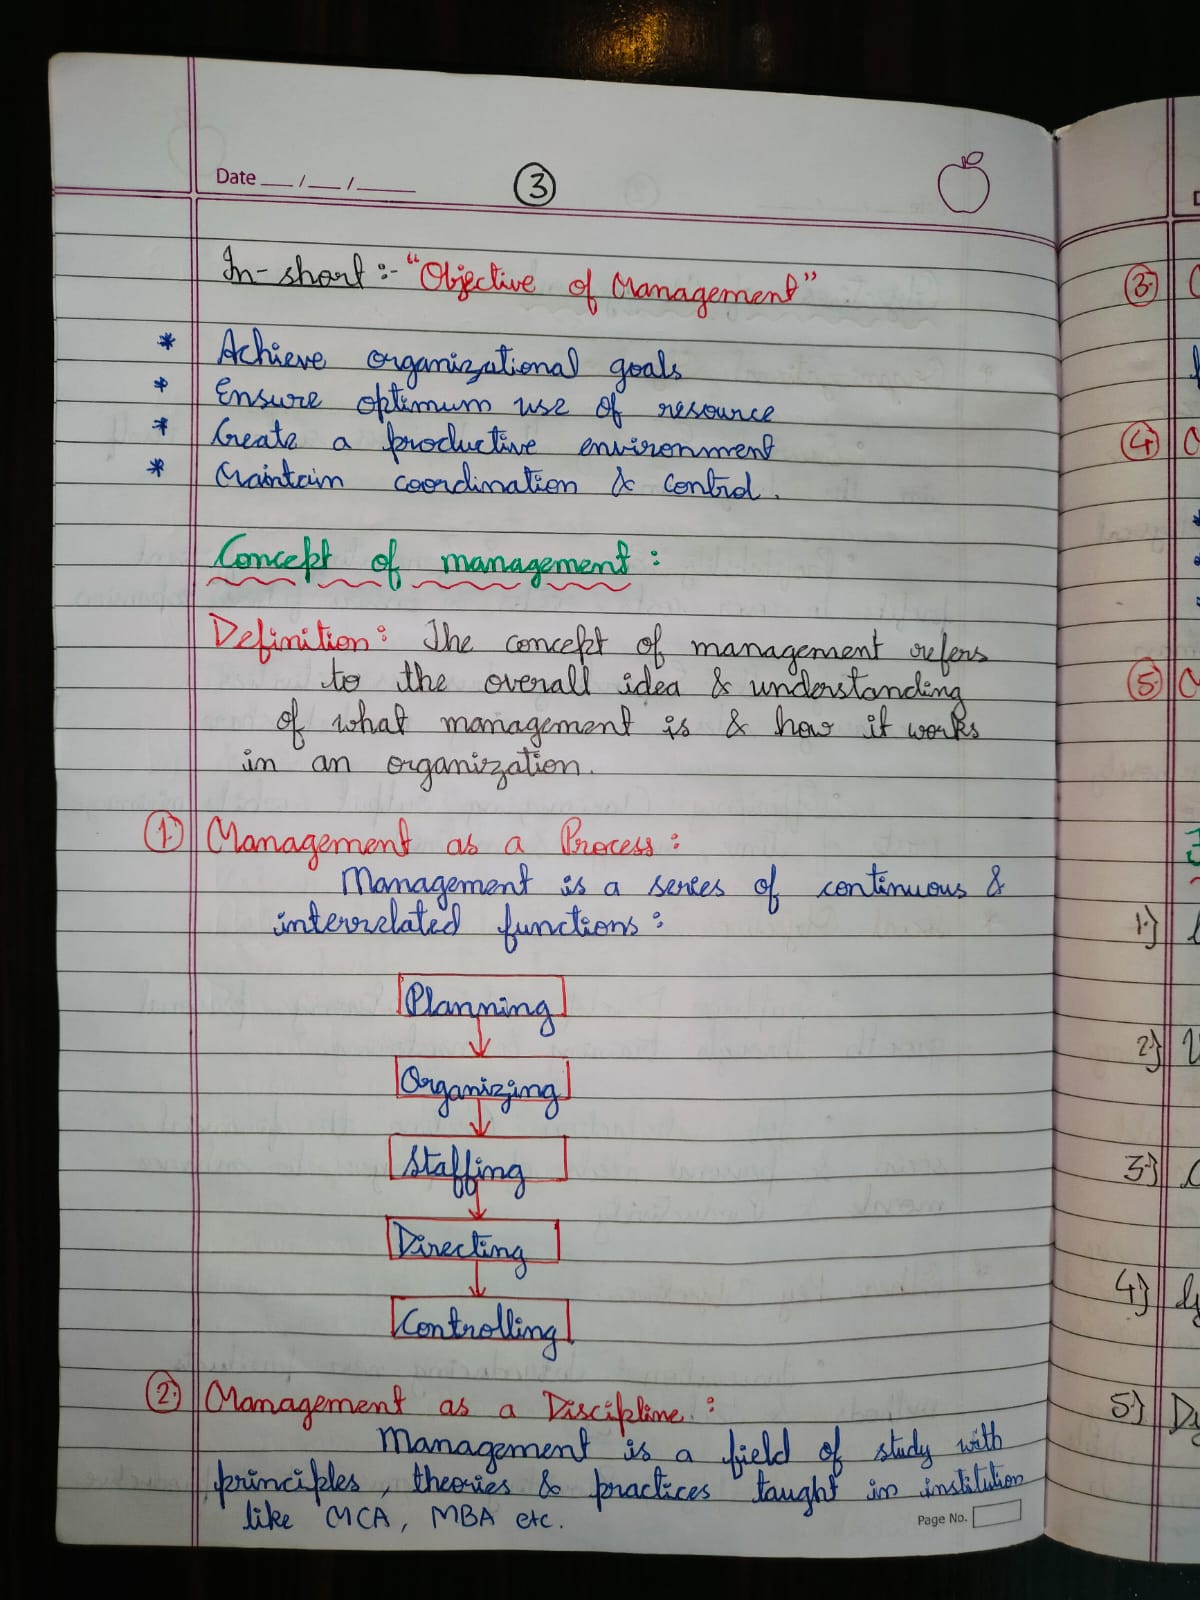 Date __/__/____
3
In-short :- "Objective of Management"
* Achieve organizational goals
* Ensure optimum use of resource
* Create a productive environment
* Maintain coordination & control.
Concept of management :
Definition : The concept of management refers
to the overall idea & understanding
of what management is & how it works
in an organization.
1. Management as a Process :
Management is a series of continuous &
interrelated functions :
Planning
Organizing
Staffing
Directing
Controlling
2. Management as a Discipline :
Management is a field of study with
principles, theories & practices taught in institution
like MCA, MBA etc.
Page No.
3.
4.
5.
1.}
2.}
3.}
4.}
5.}